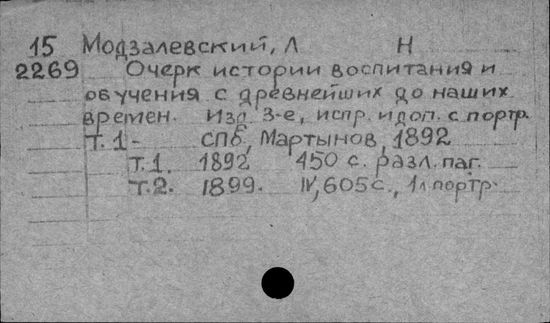 15 Модзалевский, Л Н
2269 Очерк истории воспитания и
обучения с древнейших до наших
времен. Изд. 3-е, испр. и доп. с портр.
Т. 1 - СПб, Мартынов, 1892
Т. 1. 1892 450 с. разл. паг.
Т. 2. 1899. IV, 605 с., 1 л портр.